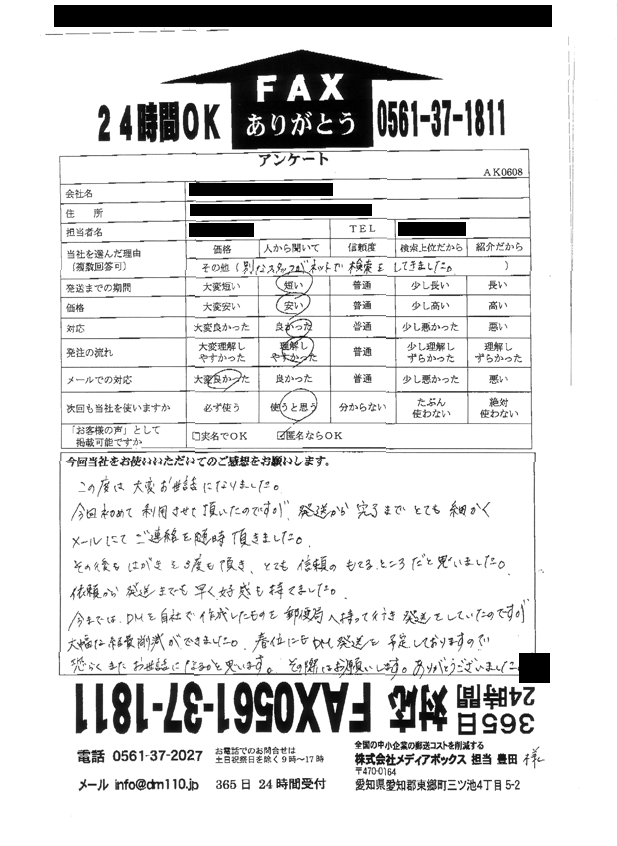 FAX
24時間OK
ありがとう
0561-37-1811
アンケート
AK0608
会社名
住 所
担当者名 TEL
当社を選んだ理由 (複数回答可) 価格 人から聞いて 信頼度 検索上位だから 紹介だから
その他(別なスタッフがネットで検索をしてきました。)
発送までの期間 大変短い 短い 普通 少し長い 長い
価格 大変安い 安い 普通 少し高い 高い
対応 大変良かった 良かった 普通 少し悪かった 悪い
発注の流れ 大変理解しやすかった 理解しやすかった 普通 少し理解しずらかった 理解しずらかった
メールでの対応 大変良かった 良かった 普通 少し悪かった 悪い
次回も当社を使いますか 必ず使う 使うと思う 分からない たぶん使わない 絶対使わない
「お客様の声」として掲載可能ですか □実名でOK ☑匿名ならOK
今回当社をお使いいただいてのご感想をお願いします。
この度は大変お世話になりました。
今回初めて利用させて頂いたのですが、発送から完了までとても細かく
メールにてご連絡を随時頂きました。
その後もはがきを 度も頂き、とても信頼のもてるところだと思いました。
依頼から発送までも早く好感も持てました。
今までは、DMを自社で作成したものを郵便局へ持って行き発送をしていたのですが
大幅な経費削減ができました。 にもDM発送を予定しておりますので
恐らくまたお世話になるかと思います。その際はお願いします。ありがとうございました。
365日 24時間 対応 FAX0561-37-1811
電話 0561-37-2027
お電話でのお問合せは
土日祝祭日を除く9時~17時
メール info@dm110.jp 365日 24時間受付
全国の中小企業の郵送コストを削減する
株式会社メディアボックス 担当 豊田 様
〒470-0164
愛知県愛知郡東郷町三ツ池4丁目5-2